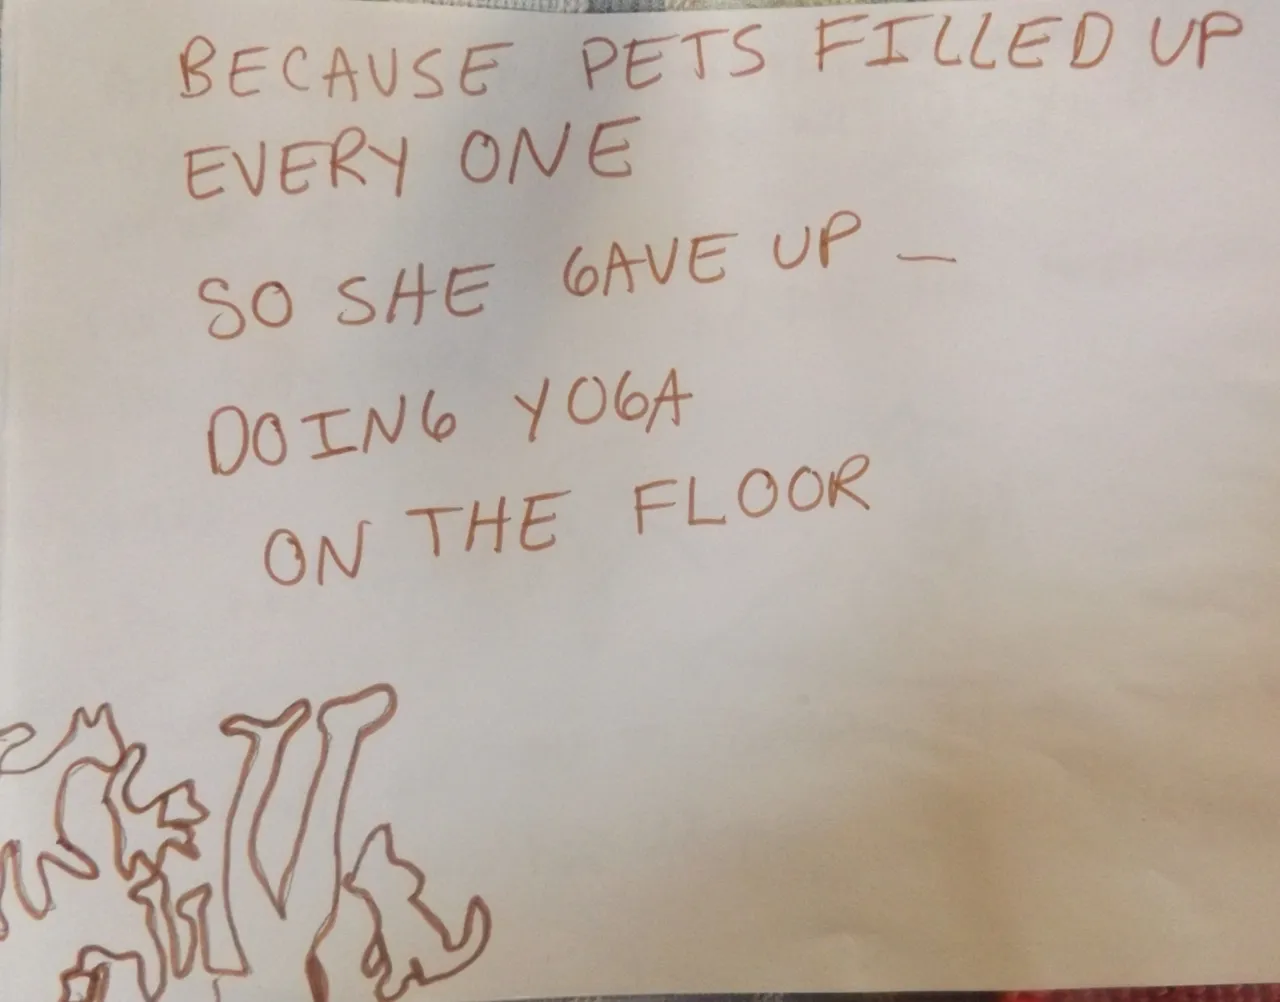 BECAUSE PETS FILLED UP
EVERY ONE
SO SHE GAVE UP _
DOING YOGA
ON THE FLOOR